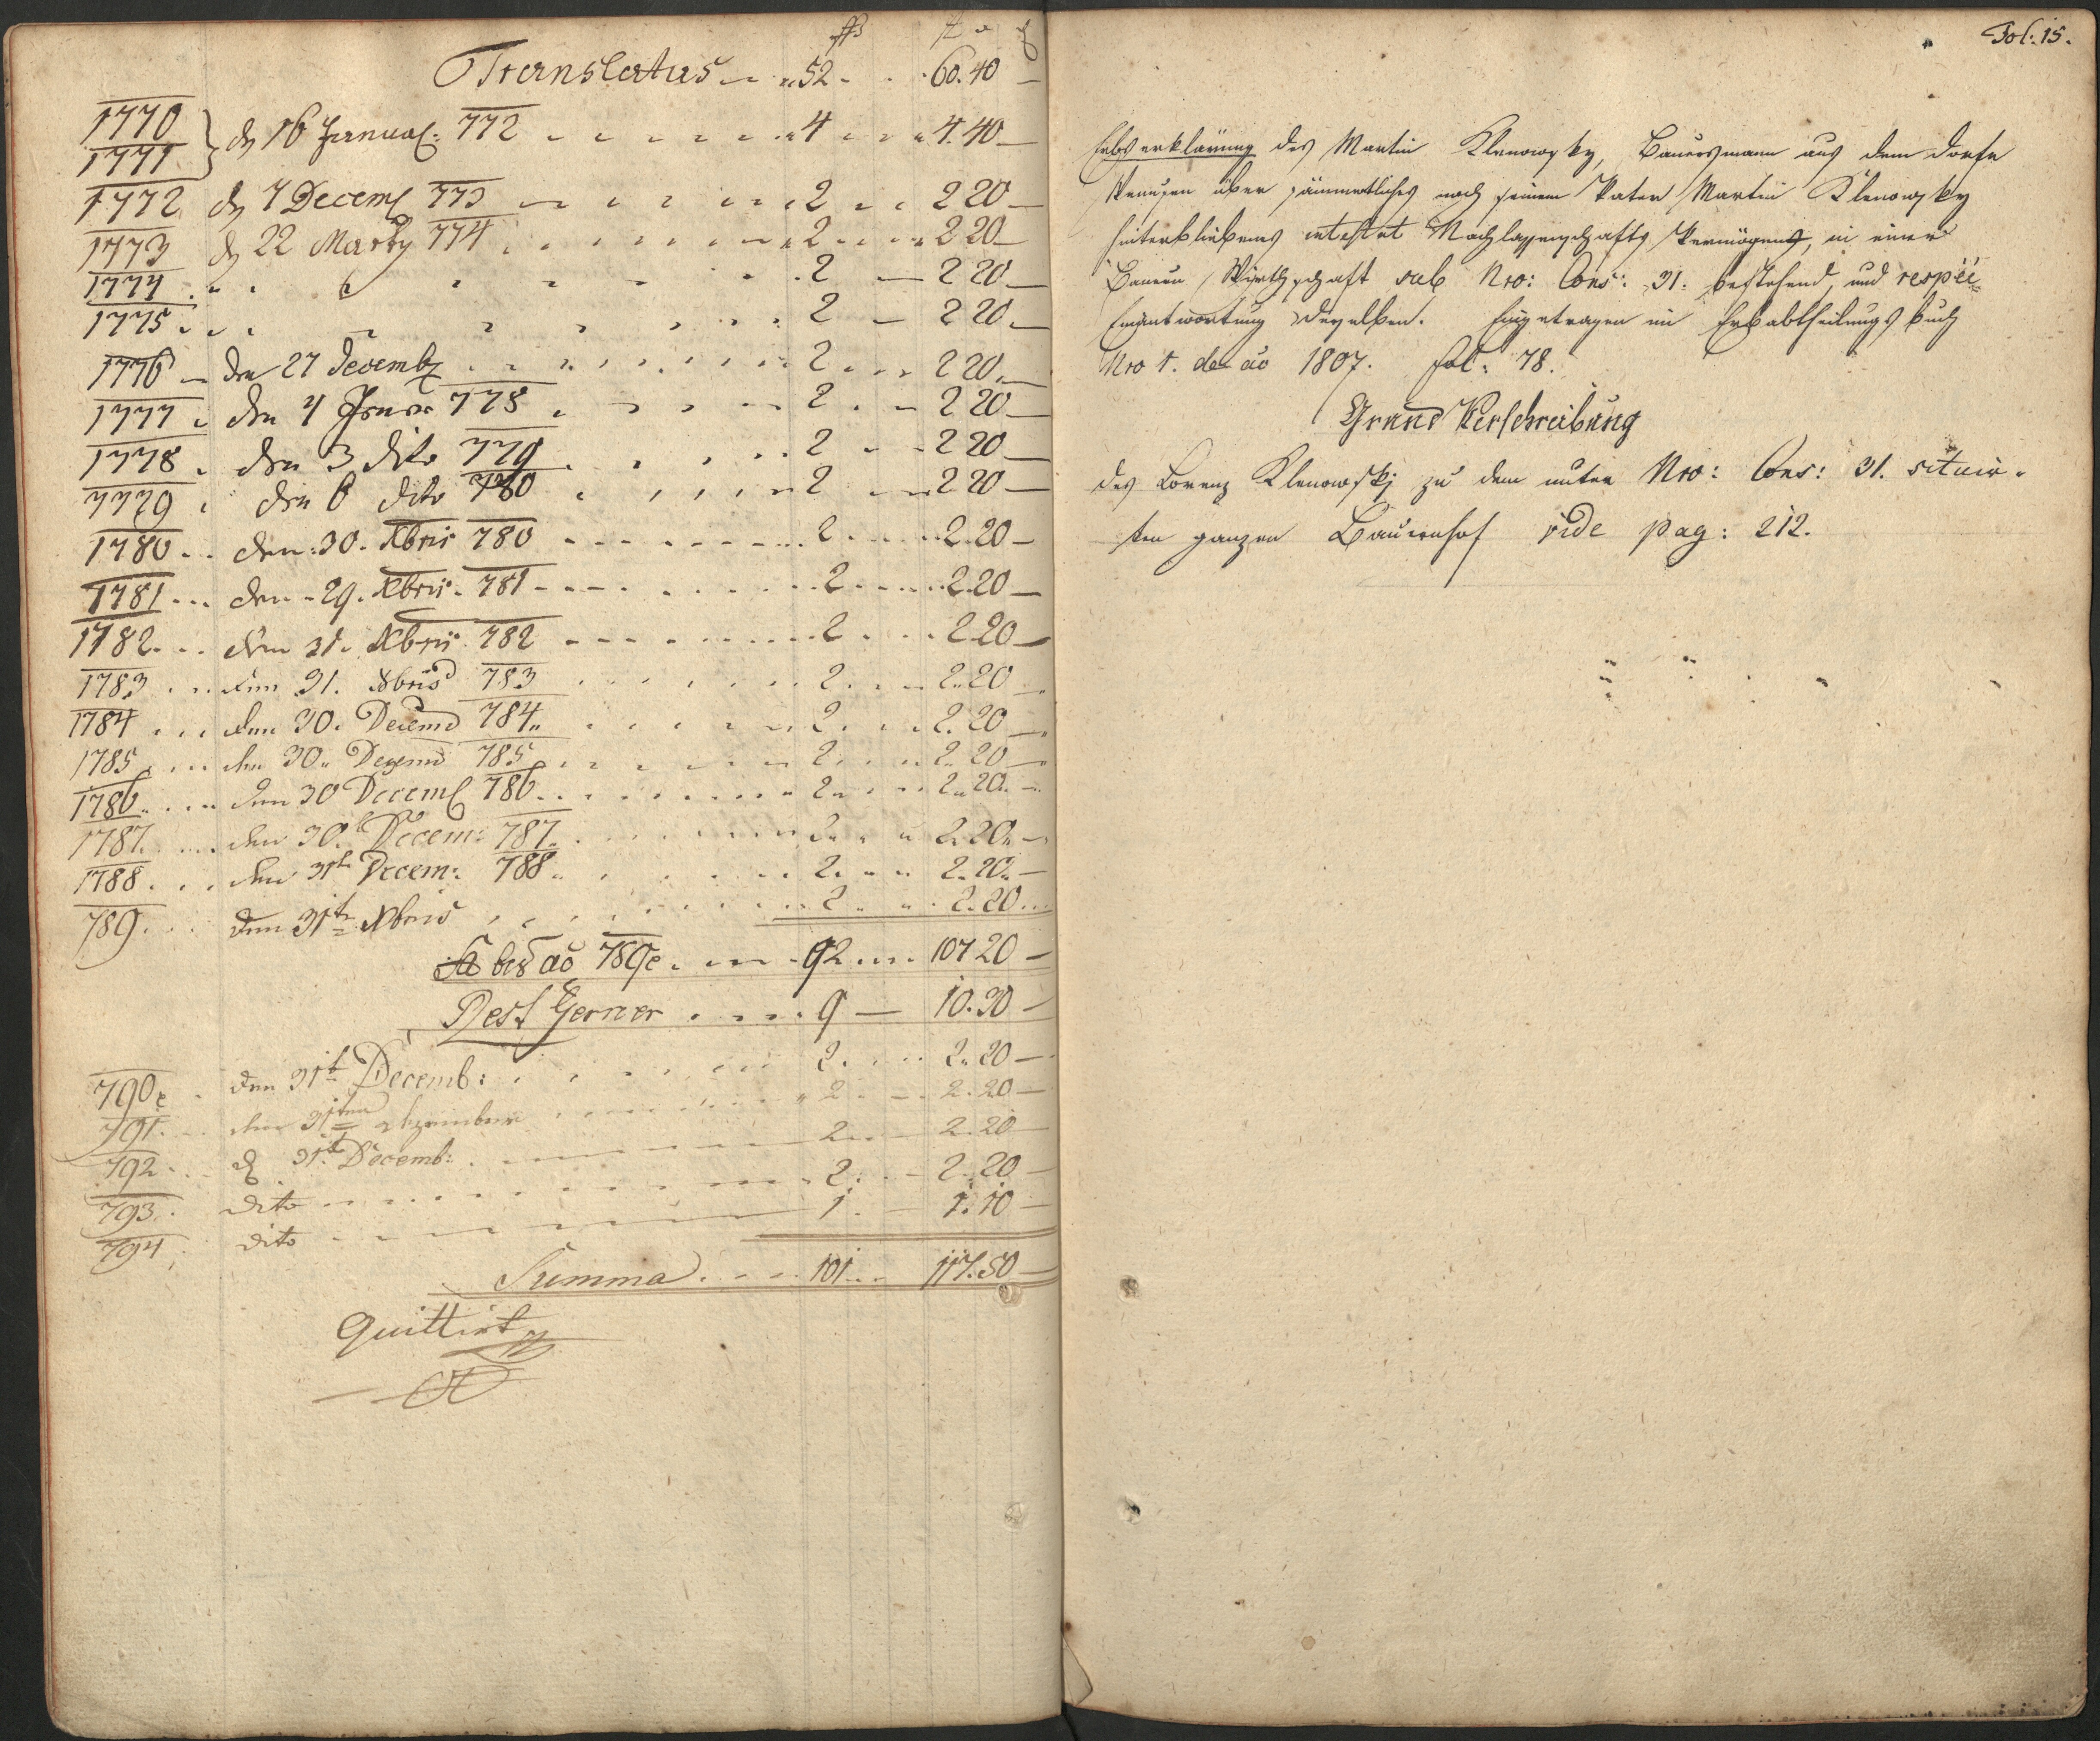 ßß f x ₰
Translatus 52 60.40
1770
1771 } dn 16 Januar: 772 4 4.40
1772 dn 7 Decemb 773 2 2 20
1773 dn 22 Marty 774 2 2 20
1774 2 2 20
1775 2 2 20
1776 den 27 Decembr 2 2 20
1777 den 4 Januar 778 2 2 20
1778 den 3 dito 779 2 2 20
1779 den 6 dito 780 2 2 20
1780 den 30. Xbris 780 2 2.20
1781 den 29. Xbris 781 2 2.20
1782 den 31. Xbris 782 2 2.20
1783 den 31. Xbris 783 2 2.20
1784 den 30. Decemb 784 2 2.20
1785 den 30. Decemb 785 2 2.20
1786 den 30 Decemb 786 2 2.20
1787 den 30t Decem: 787 2 2.20
1788 den 31t Decem: 788 2 2.20
789 den 31t Xbris 2 2.20
bis aõ 789e 92 107 20
Rest ferner 9 10.30
790e den 31t Decemb: 2 2.20
791 den 31ten Dezember 2 2.20
792 dn 31t Decemb: 2 2.20
793 dito 2 2.20
794 dito 1 1.10
Summa 101 117.50
Quittirt
Fol: 15.
Erbserklärung des Martin Klenowsky, Bauersmann aus dem Dorfe
über sämmtliches nach seinem Vater Martin Klenowsky
hinterbliebenes intestat Nachlassenschafts Vermögens, in einer
Bauern Wirthschaft sub Nro: Cons: 31. bestehend, und respẽe
Einantwortung derselben. Eingetragen im Erbabtheilungs buch
Nro 1. de aõ 1807. fol: 78.
Grund Verschreibung
des Lorenz Klenowskj zu dem unter Nro: Cons: 31. situir-
ten ganzen Bauernhof vide pag: 212.